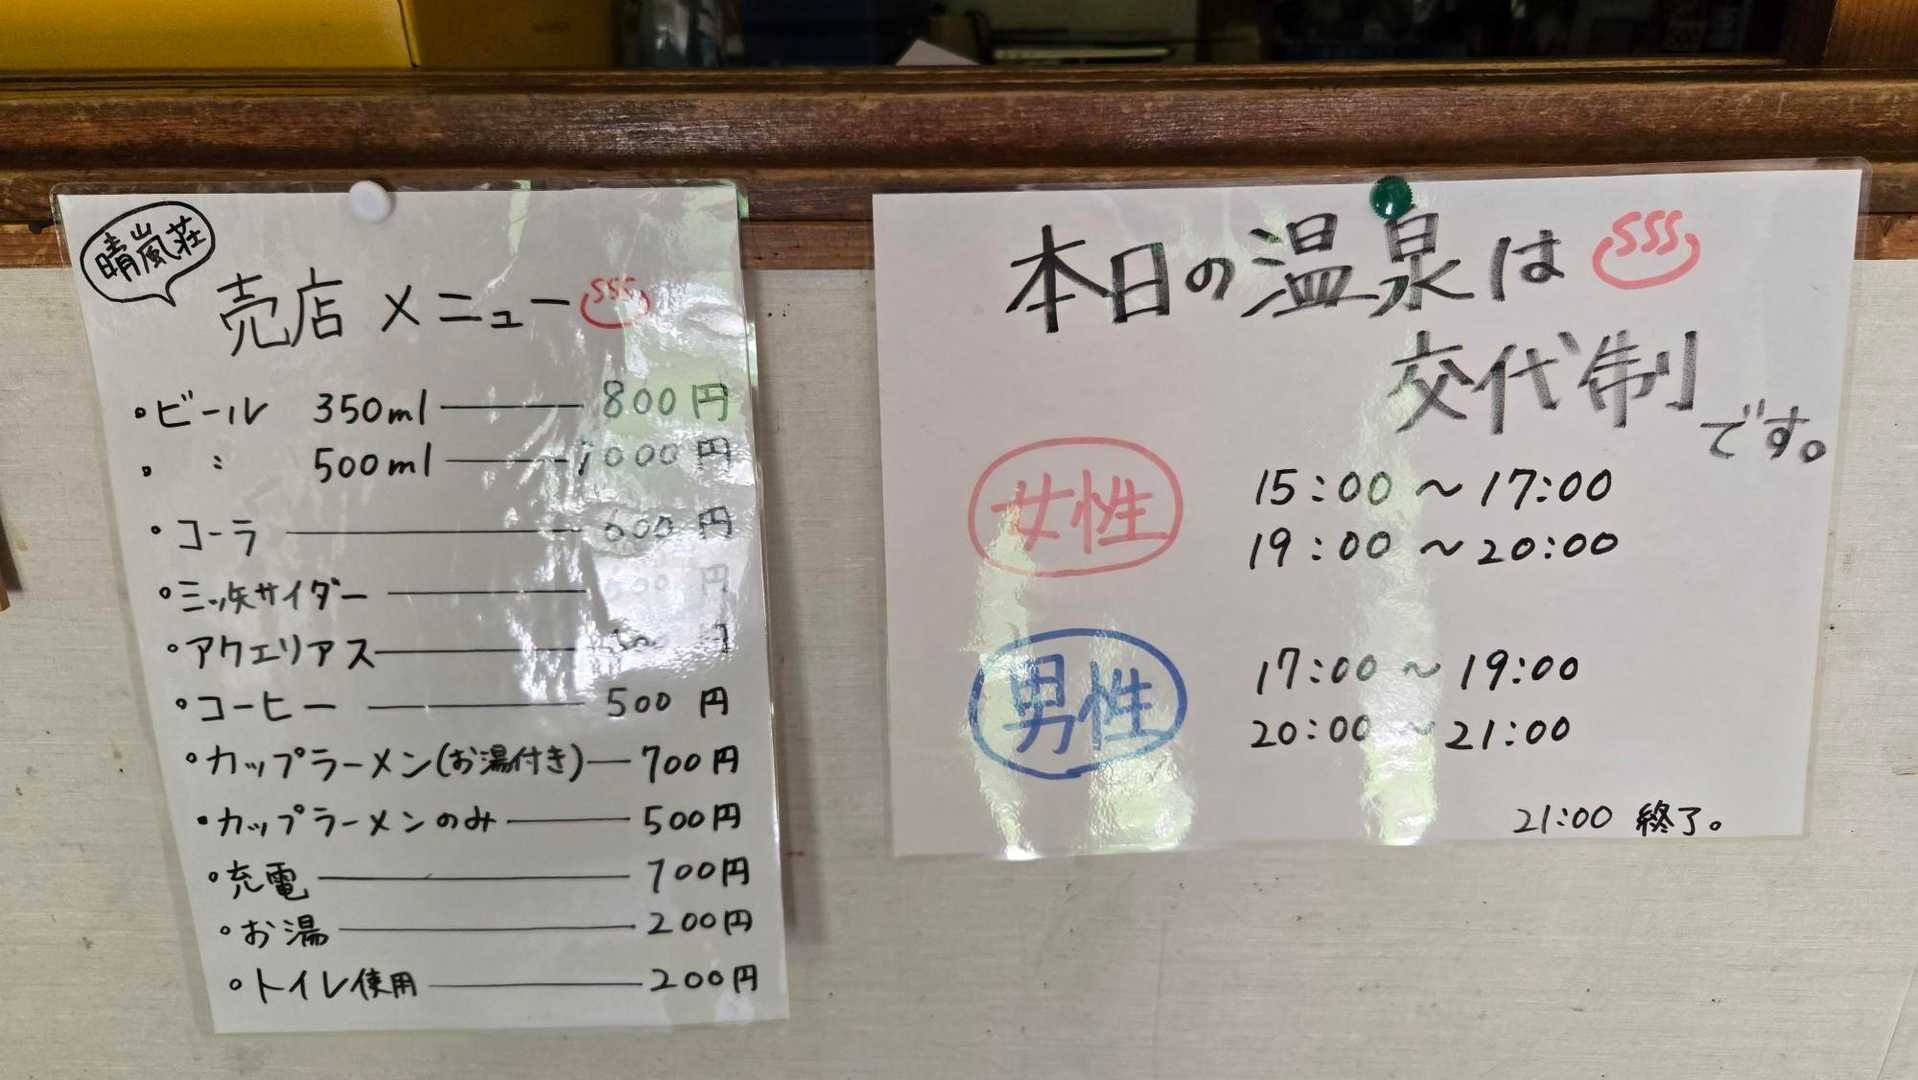 晴嵐荘
売店メニュー
・ビール 350ml 800円
・ 〃 500ml 1000円
・コーラ 600円
・三ッ矢サイダー 円
・アクエリアス 円
・コーヒー 500円
・カップラーメン(お湯付き) 700円
・カップラーメンのみ 500円
・充電 700円
・お湯 200円
・トイレ使用 200円
本日の温泉は
交代制です。
女性 15:00～17:00
19:00～20:00
男性 17:00～19:00
20:00～21:00
21:00 終了。